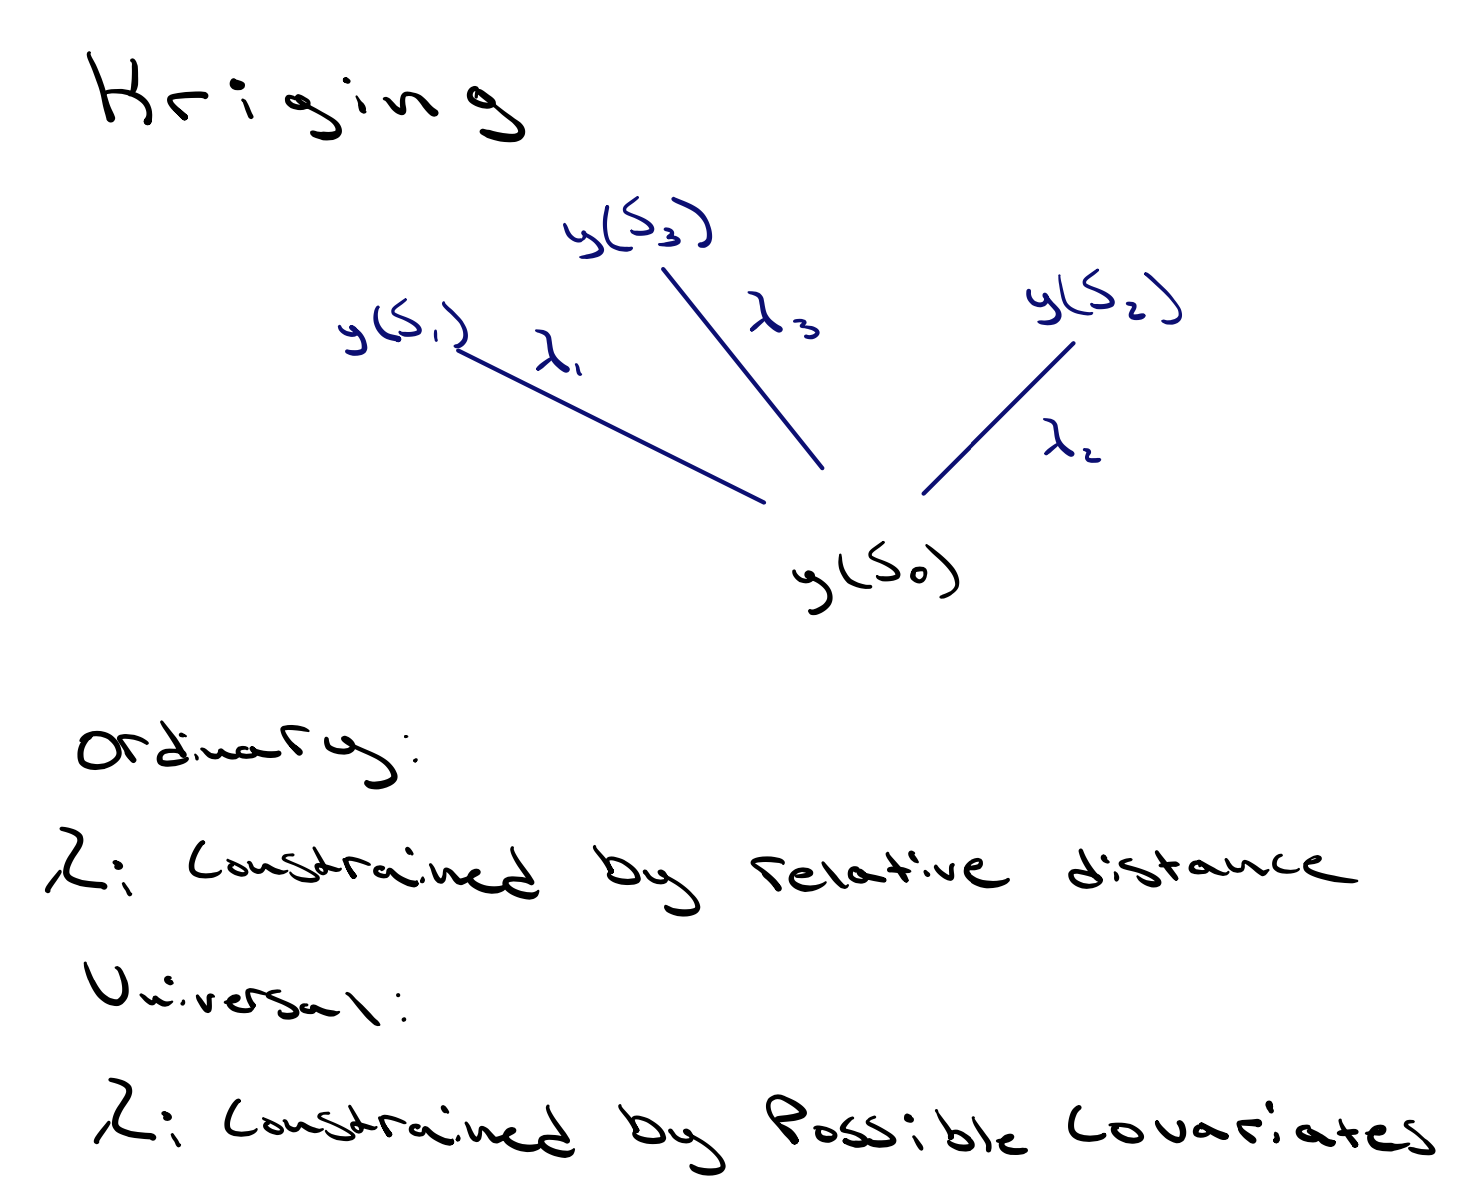 Kriging
y(S₃)
y(S₂)
y(S₁) λ₁ λ₃
λ₂
y(S₀)
Ordinary:
λᵢ Constrained by relative distance
Universal:
λᵢ Constrained by Possible Covariates